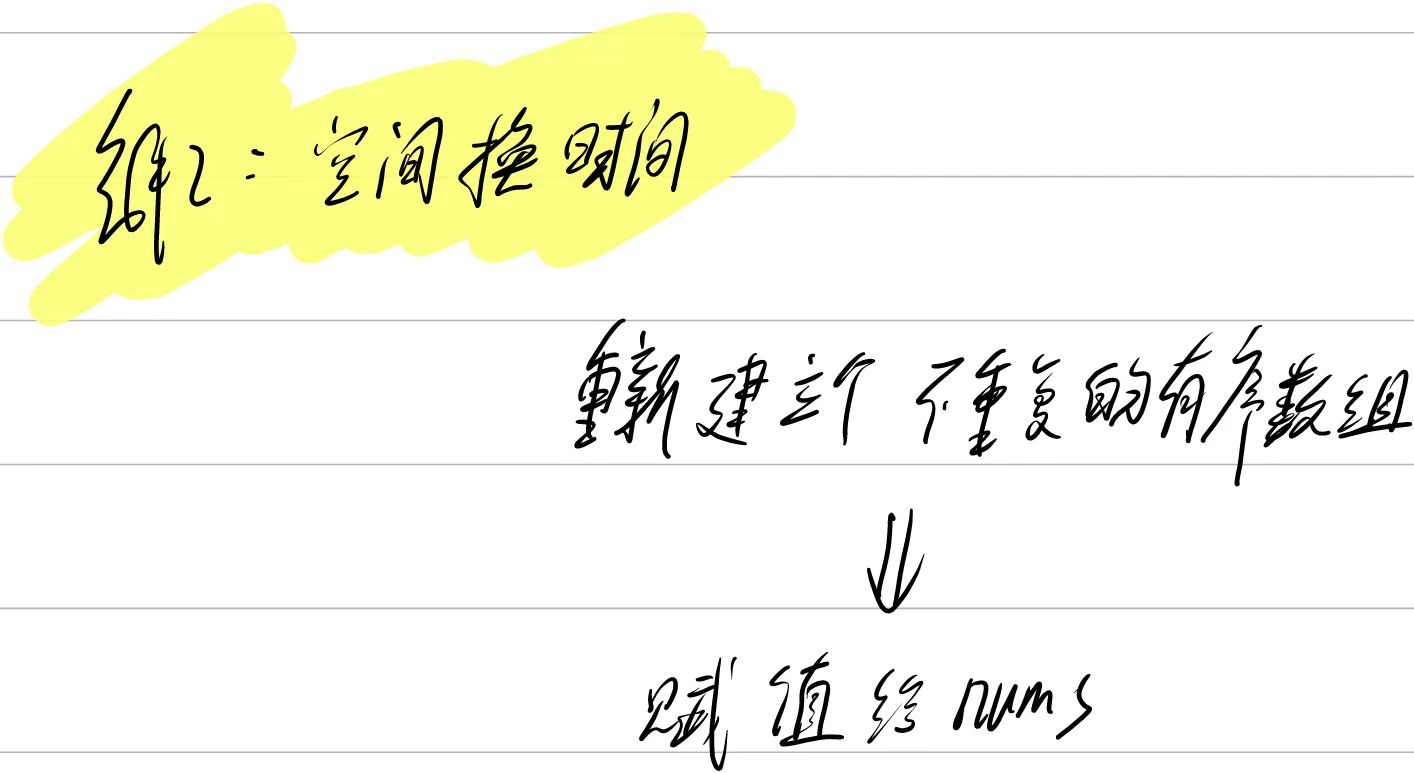 解2：空间换时间
重新建立个不重复的有序数组
⇓
赋值给nums